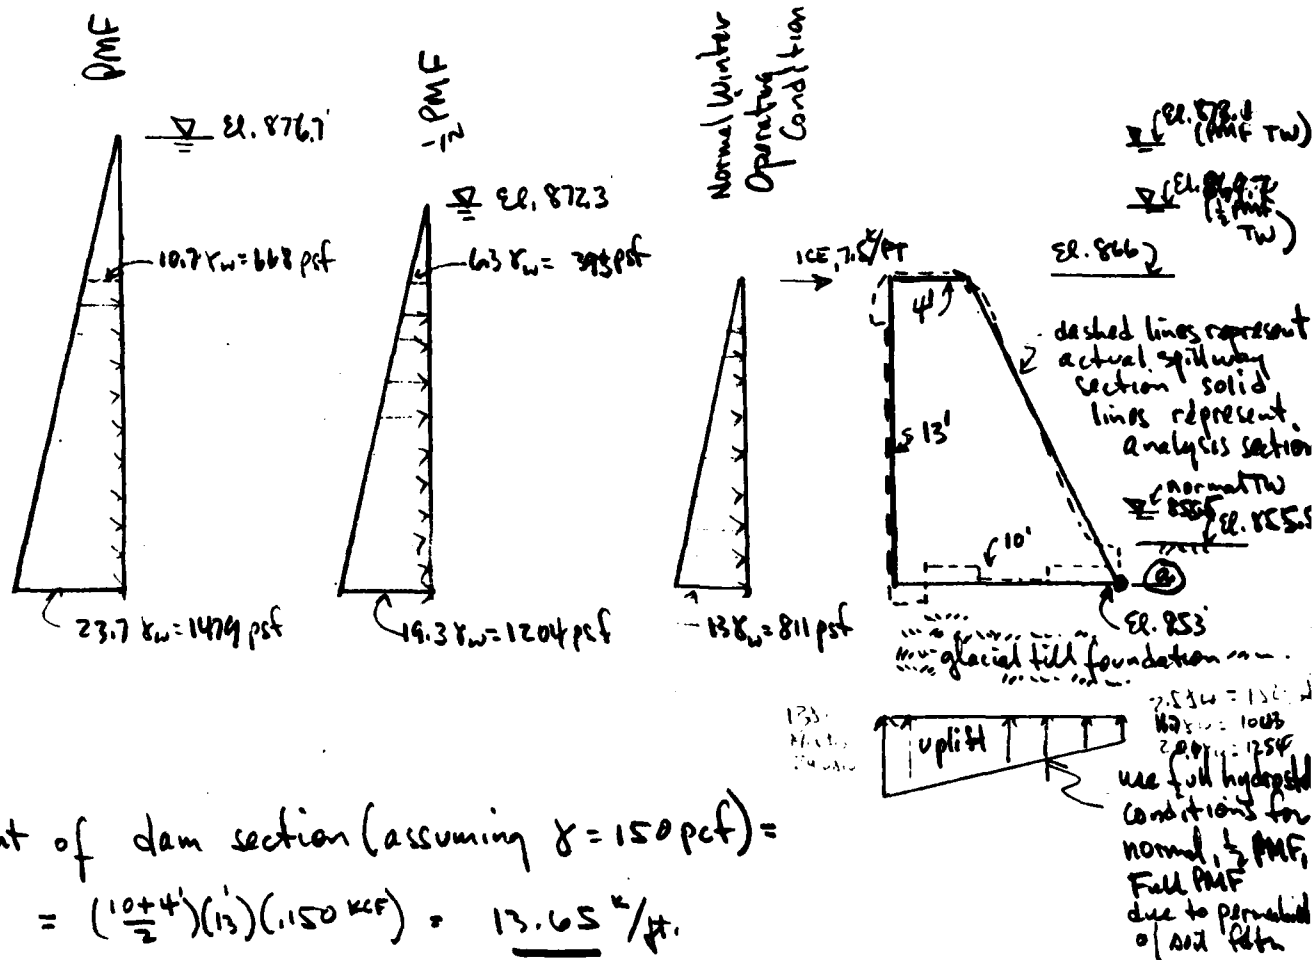 PMF
El. 876.7'
10.7 γw = 668 psf
23.7 γw = 1479 psf
½ PMF
El. 872.3
6.3 γw = 393 psf
19.3 γw = 1204 psf
Normal Winter
Operating
Condition
13 γw = 811 psf
ICE, 7.5 k/FT
4'
13'
10'
(PMF TW)
(½ PMF
TW)
El. 866
dashed lines represent
actual spillway
section solid
lines represent
analysis section
normal TW
855.5
El. 855.5
a
El. 853'
glacial till foundation
uplift
use full hydrost
conditions for
normal, ½ PMF,
Full PMF
due to permeabil
of soil
nt of dam section (assuming γ = 150 pcf) =
= (10+4'/2)(13')(.150 KCF) = 13.65 k/ft.